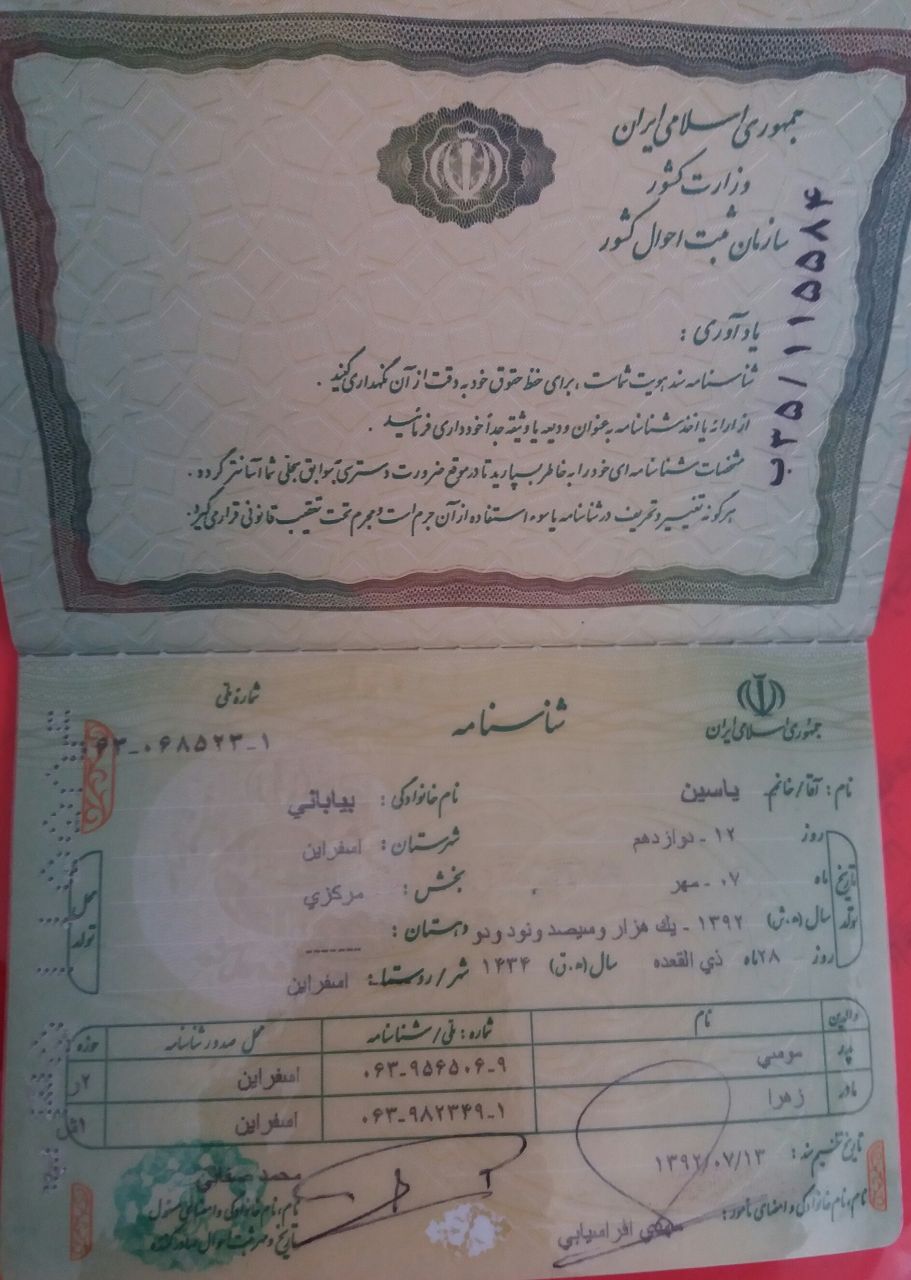 جمهوری اسلامی ایران
وزارت کشور
سازمان ثبت احوال کشور
ب۳۵/۱۱۵۵۸۴
یادآوری :
شناسنامه سند هویت شماست ، برای حفظ حقوق خود به دقت از آن نگهداری کنید .
از ارائه یا اخذ شناسنامه به عنوان ودیعه یا وثیقه جداً خودداری فرمائید .
مشخصات شناسنامه ای خود را به خاطر بسپارید تا در موقع ضرورت دسترسی به سوابق سجلی شما آسانتر گردد .
هرگونه تغییر و تحریف در شناسنامه یا سوء استفاده از آن جرم است و مجرم تحت تعقیب قانونی قرار می گیرد .
جمهوری اسلامی ایران
شناسنامه
شماره ملی
۰۶۳-۰۶۸۵۲۳-۱
نام : آقا/خانم یاسین نام خانوادگی : بیابانی
تاریخ تولد
روز ۱۲ - دوازدهم شهرستان : اسفراین
ماه ۰۷ - مهر بخش : مرکزی
سال (ه.ش) ۱۳۹۲ - یك هزار وسیصد ونود ودو دهستان : -------
روز ۲۸ ماه ذي القعده سال (ه.ق) ۱۴۳۴ شهر/روستا : اسفراین
محل تولد
والدین نام شماره : ملی/شناسنامه محل صدور شناسنامه حوزه
پدر موسي ۰۶۳-۹۵۶۵۰۶-۹ اسفراین ۲ر
مادر زهرا ۰۶۳-۹۸۲۳۴۹-۱ اسفراین
تاریخ تنظیم سند : ۱۳۹۲/۰۷/۱۳
نام، نام خانوادگی و امضای مأمور : مهدي افراسیابي
محمد
نام، نام خانوادگی و امضای مسئول
تاریخ و مهر ثبت احوال صادرکننده